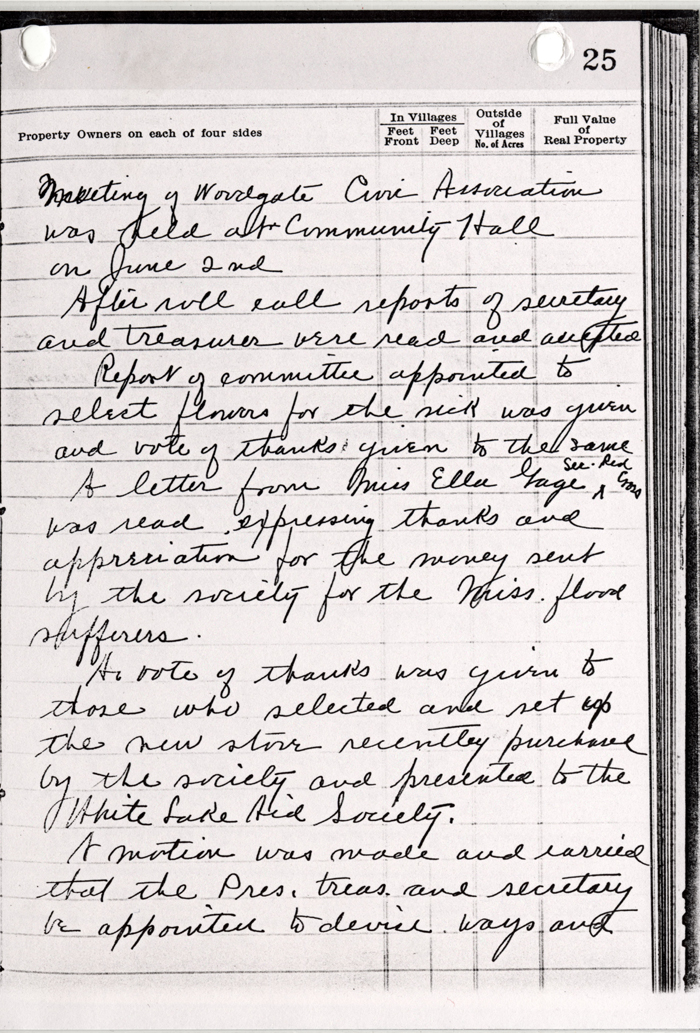 25
Property Owners on each of four sides
In Villages
Feet Front
Feet Deep
Outside of Villages No. of Acres
Full Value of Real Property
Meeting of Woodgate Civic Association
was held at Community Hall
on June 2nd
After roll call reports of secretary
and treasurer were read and accepted
Report of committee appointed to
select flowers for the sick was given
and vote of thanks given to the same
A letter from Miss Ella Gage Sec. Red Cross
was read expressing thanks and
appreciation for the money sent
by the society for the Miss. flood
sufferers.
A vote of thanks was given to
those who selected and set up
the new stove recently purchased
by the society and presented to the
White Lake Aid Society.
A motion was made and carried
that the Pres. treas. and secretary
be appointed to devise ways and